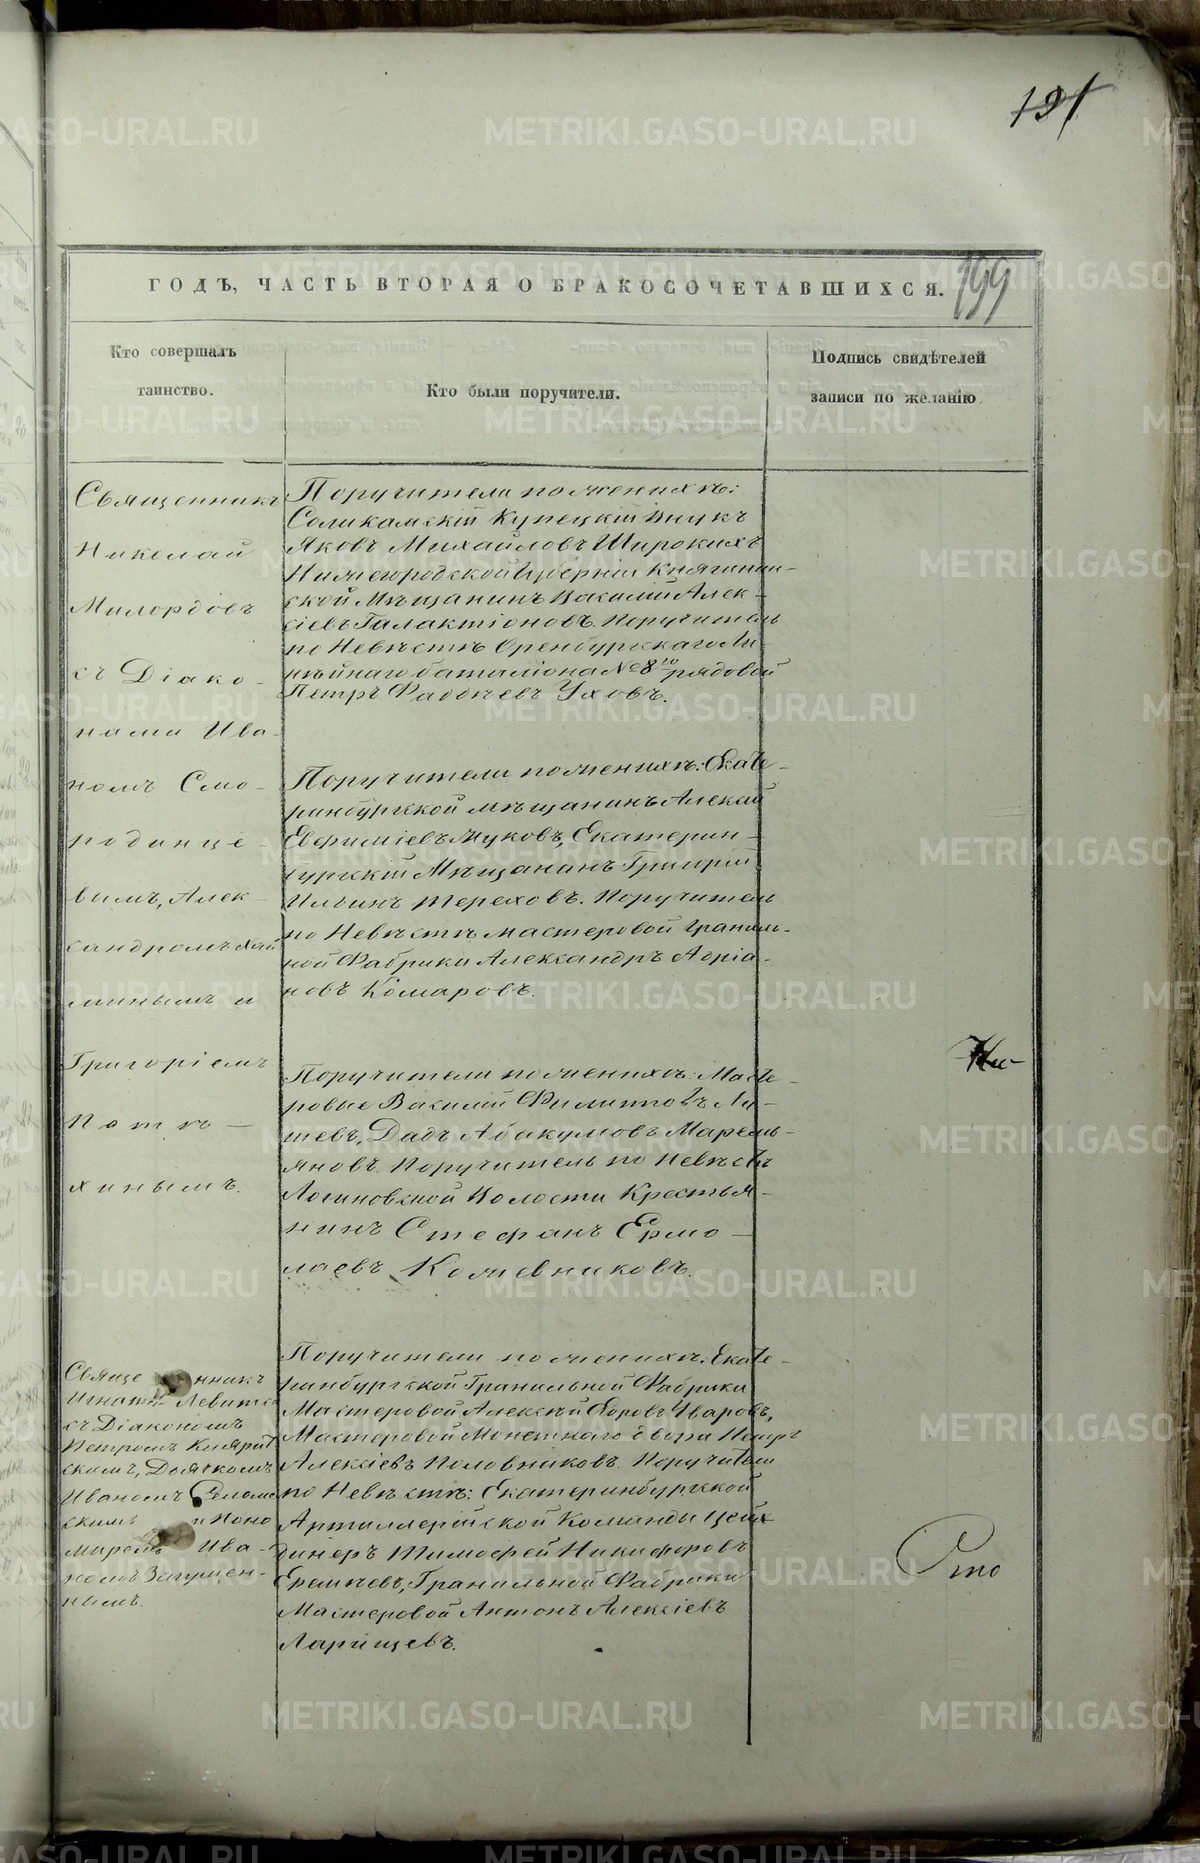 191
ГОДЪ, ЧАСТЬ ВТОРАЯ О БРАКОСОЧЕТАВШИХСЯ.
199
Кто совершалъ
таинство.
Кто были поручители.
Подпись свидѣтелей
записи по желанію
Священникъ
Николай
Милордовъ
съ Діако-
нами Ива-
номъ Смо-
родинце-
вымъ, Алек-
сандромъ
минымъ и
Григоріемъ
Потѣ-
хинымъ.
Поручители по женихѣ:
Соликамскій Купецкій Внукъ
Яковъ Михайловъ Широкихъ
Нижегородской Губерніи Княгинин-
ской Мѣщанинъ Василій Алек-
сіевъ Галактіоновъ. Поручитель
по Невѣстѣ Оренбургскаго Ли-
нѣйнаго баталіона № 8го рядовой
Петръ Фадѣевъ Уховъ.
Поручители по женихѣ: Екате-
ринбургской мѣщанинъ Алексѣй
Евфиміевъ Жуковъ, Екатерин-
бургскій Мѣщанинъ Григорій
Ильинъ Тереховъ. Поручитель
по Невѣстѣ мастеровой Граниль-
ной Фабрики Александръ Адріа-
новъ Комаровъ.
Поручители по женихѣ: Масте-
ровые Василій Филипповъ Ля-
пшевъ, Дадъ Абакумовъ Марель-
яновъ. Поручитель по Невѣстѣ
Логиновской Волости Крестья-
нинъ Стефанъ Ермо-
лаевъ Кожевниковъ.
Священникъ
Игнатій Левитск
съ Діакономъ
Петромъ
скимъ, Дьячкомъ
Иваномъ
скимъ и Поно
маремъ Ива-
номъ Загумен-
нымъ.
Поручители по женихѣ: Екате-
ринбургской Гранильной Фабрики
Мастеровой Алексѣй Егоровъ Уваровъ,
Мастеровой Монетнаго двора Петръ
Алексіевъ Половниковъ. Поручители
по Невѣстѣ: Екатеринбургской
Артиллерійской Команды Цейх
динеръ Тимофей Никифоровъ
Еремѣевъ, Гранильной Фабрики
Мастеровой Антонъ Алексіевъ
Ларищевъ.
METRIKI.GASO-URAL.RU